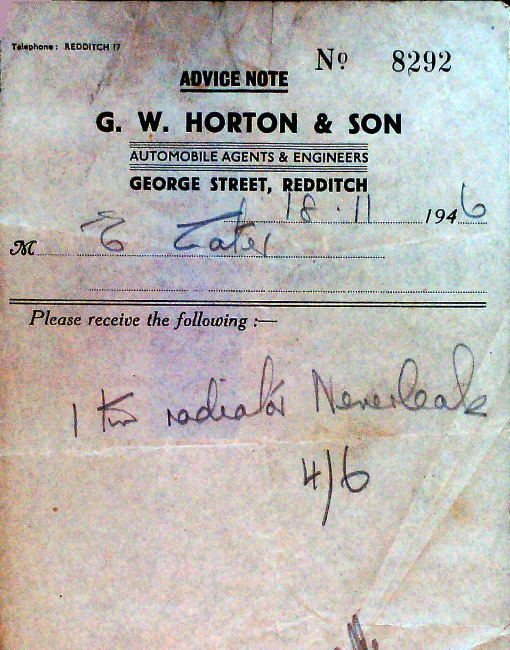 Telephone: REDDITCH 17
Nº 8292
ADVICE NOTE
G. W. HORTON & SON
AUTOMOBILE AGENTS & ENGINEERS
GEORGE STREET, REDDITCH
18.11 1946
M E
Please receive the following :—
1 Tin radiator Neverleak
4/6